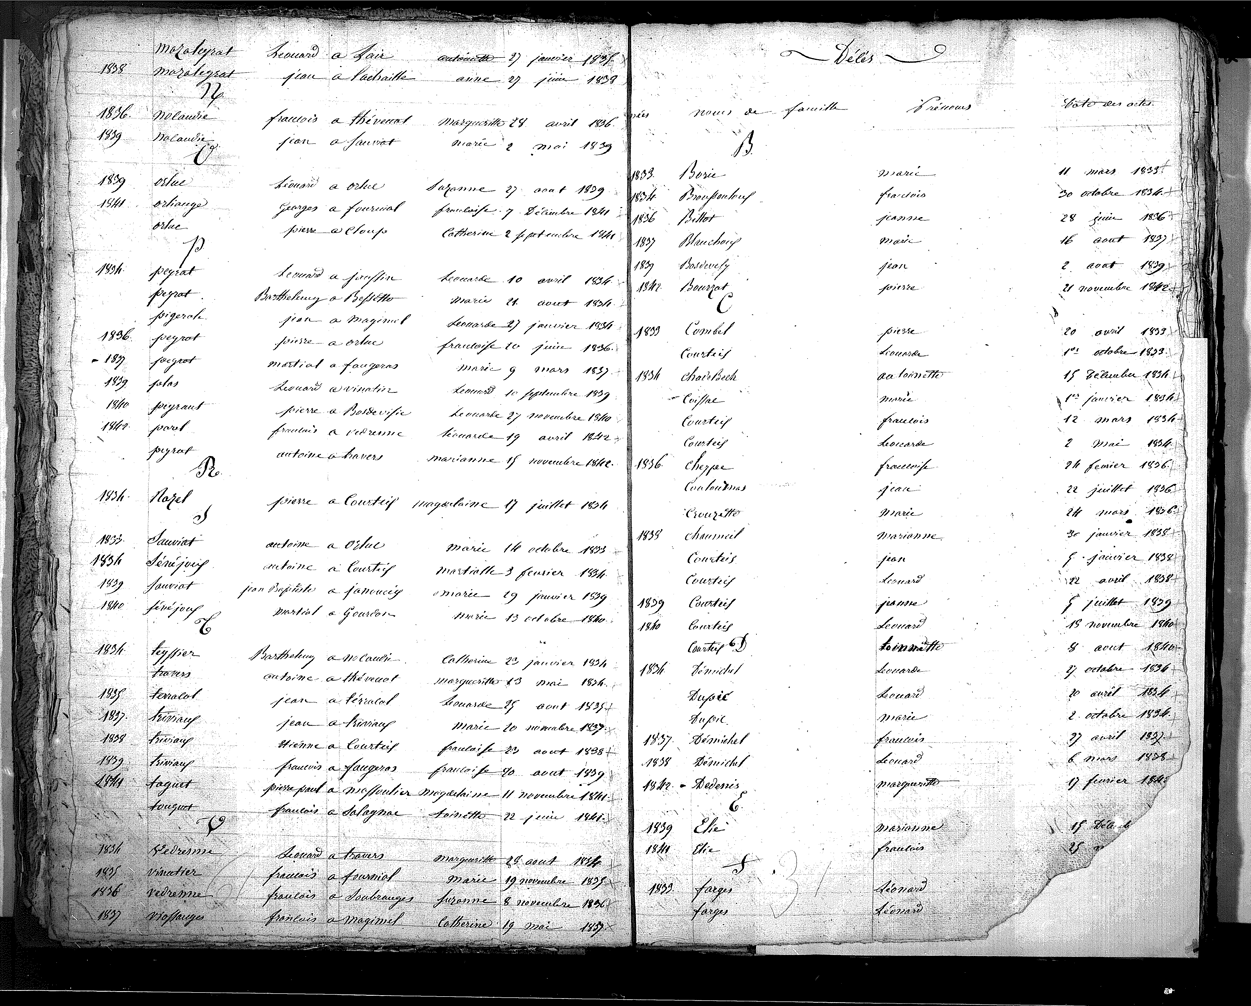 mazaleyrat Léonard a Lair antoinette 27 janvier 1837
1838 mazaleyrat jean a Lachaille anne 27 juin 1838
N
1836 nolaudie francois a thévenot margueritte 28 avril 1836
1839 nolaudie jean a Sauviat marie 2 mai 1839
O
1839 orluc Léonard a orluc Suzanne 27 aout 1839
1841 orliange Georges a fournial francoise 7 Décembre 1841
orluc pierre a Cloup Catherine 2 septembre 1841
P
1834 peyrat Léonard a Léonarde 10 avril 1834
peyrat Barthelemy a marie 21 aout 1834
jean a magimel Léonarde 27 janvier 1834
1836 peyrat pierre a orluc francoise 20 juin 1836
1837 peyrat martial a faugeras marie 9 mars 1837
1839 plas Léonard a vinatier Léonard 10 septembre 1839
1840 peyraut pierre a Léonarde 27 novembre 1840
1842 francois a vedrenne Léonarde 19 avril 1842
peyrat antoine a travers marianne 15 novembre 1842
R
1834 Razel pierre a Courteix magdelaine 17 juillet 1834
S
1833 Sauviat antoine a Orluc marie 14 octobre 1833
1834 Sénéjoux antoine a Courteix martialle 3 fevrier 1834
1839 Sauviat jean Baptiste a marie 29 janvier 1839
1840 Sénéjoux martial a Gourdon marie 13 octobre 1840
T
1834 teyssier Barthelemy a nolaudie Catherine 23 janvier 1834
travers antoine a thévenot margueritte 23 mai 1834
1835 terracol jean a térracol Léonarde 25 aout 1835
1837 triviaux jean a triviaux marie 20 novembre 1837
1838 triviaux étienne a Courteix francoise 23 aout 1838
1839 triviaux francois a faugeras francoise 30 aout 1839
1841 taguet pierre paul a messoulier magdelaine 11 novembre 1841
touquet francois a Salagnac toinette 22 juin 1841
V
1834 Vedrenne Léonard a travers margueritte 28 aout 1834
1835 vinatier francois a fourniol marie 19 novembre 1835
1836 vedrenne francois a Soubranges suzanne 8 novembre 1836
1837 francois a magimel Catherine 19 mai 1837
Décès
nées noms de famille Prénoms Date des actes
B
1833 Borie marie 11 mars 1833
1834 francois 30 octobre 1834
1836 Billot jeanne 28 juin 1836
1837 marie 16 aout 1837
1839 jean 2 aout 1839
1842 Bourzat pierre 21 novembre 1842
C
1833 Combet pierre 20 avril 1833
Courteix Léonarde 1er octobre 1833
1834 Chaisbech antoinette 15 Décember 1834
marie 1er janvier 1834
Courteix francois 12 mars 1834
Courteix Léonarde 2 mai 1834
1836 Cheype francoise 24 fevrier 1836
Couloudnas jean 22 juillet 1836
Crouzette Marie 24 mars 1836
1838 Chaumeil marianne 30 janvier 1838
Courteix jean 5 janvier 1838
Courteix Léonard 22 avril 1838
1839 Courteix jeanne 5 juillet 1839
1840 Courteix Léonard 18 novembre 1840
Courteix toinnette 8 aout 1840
D
1834 Démichel Léonarde 27 octobre 1834
Dupic Léonard 10 avril 1834
Dupic marie 2 octobre 1834
1837 Démichel francois 27 avril 1837
1838 Démichel Léonard 6 mars 1838
1842 Dedenis margueritte 17 fevrier 1842
E
1839 Elie marianne 15
1841 Elie francois 25
F
1833 farges Léonard
farges Léonard
31